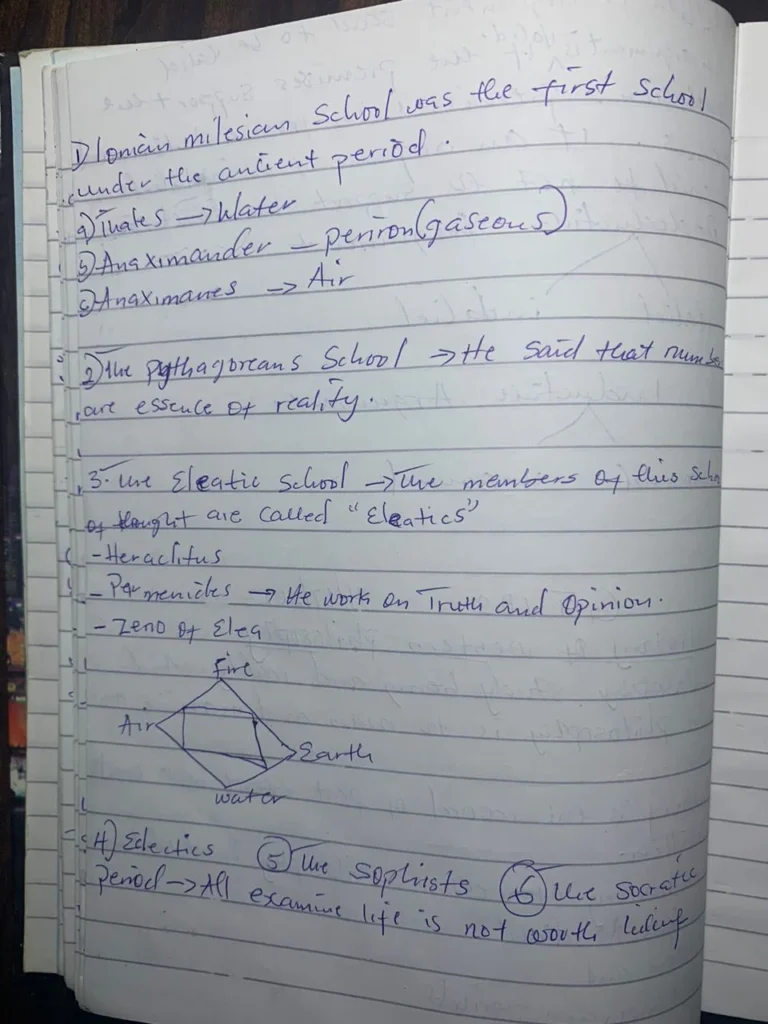 1) Ionian milesian School was the first School
under the ancient period.
a) Thales → Water
b) Anaximander – periron (gaseous)
c) Anaximanes → Air
2) The Pythagoreans School → He said that numbe
are essence of reality.
3. The Eleatic School → The members of this scho
of thought are called "Eleatics"
- Heraclitus
- Parmenides → He work on Truth and Opinion.
- Zeno of Elea
Fire
Air
Earth
water
4) Eclectics 5 The Sophists 6 The Socratic
Period → All examine life is not worth living